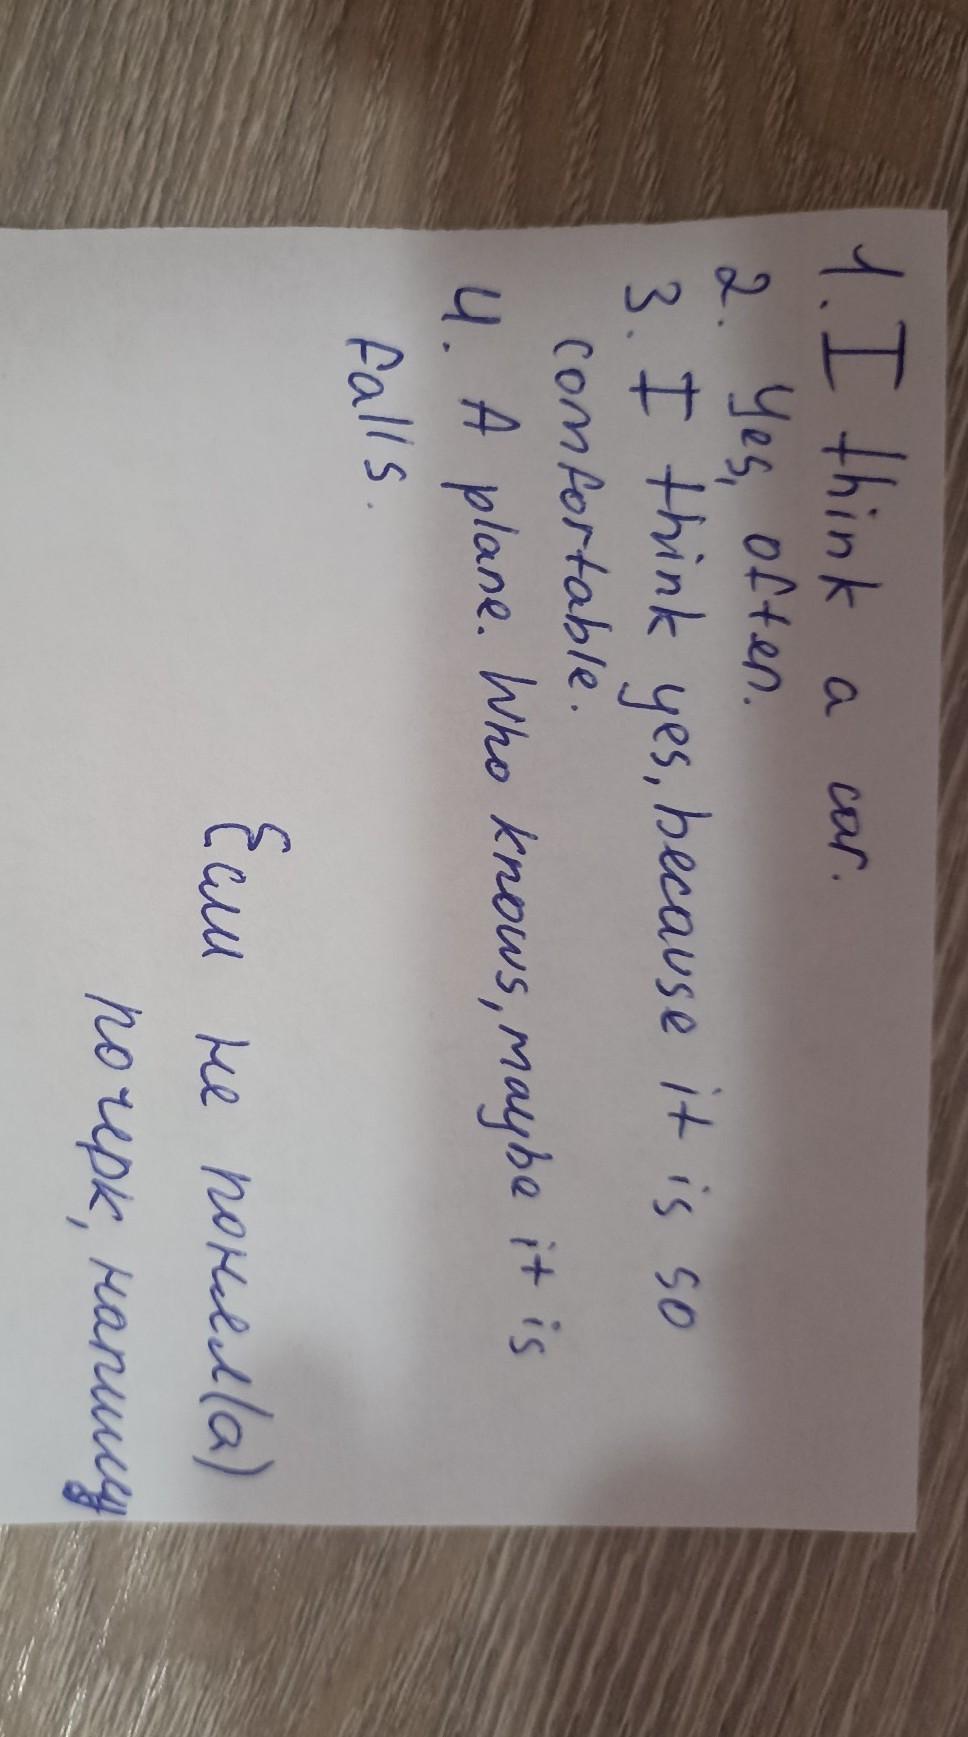 1. I think a car.
2. Yes, often.
3. I think yes, because it is so
comfortable.
4. A plane. Who knows, maybe it is
falls.
Если не понел(а)
почерк, напишу